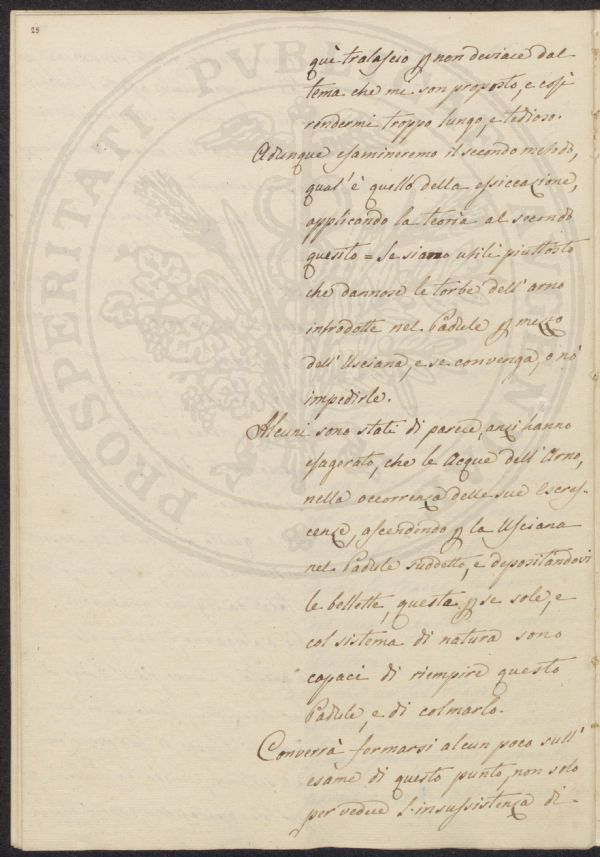 28
quì tralascio p non deviare dal
tema che mi son proposto, e così
rendermi troppo lungo, e tedioso.
Adunque esamineremo il secondo metodo,
qual'è quello della essiccazione,
applicando la teoria al secondo
quesito = Se siano utili piuttosto
che dannose le torbe dell'arno
introdotte nel Padule p mezzo
dell'Usciana, e se convenga, o nò
impedirle.
Alcuni sono stati di parere, anzi hanno
esagerato, che le Acque dell'Arno,
nella occorrenza delle sue Escres-
cenze, ascendendo p la Usciana
nel Padule suddetto, e depositandovi
le bellette, questa p se sole, e
col sistema di natura sono
capaci di riempire questo
Padule, e di colmarlo.
Converrà fermarsi alcun poco sull'
esame di questo punto, non solo
per vedere l'insussistenza di-
PROSPERITATI PUBLICAE AUGENDAE